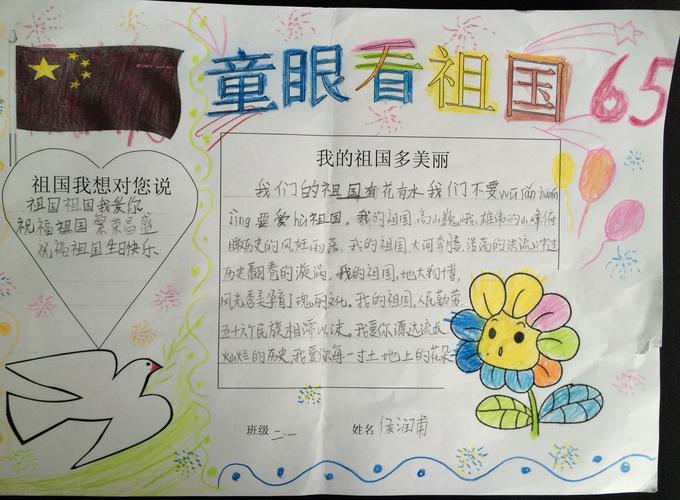 童眼看祖国 65
祖国我想对您说
祖国祖国我爱你
祝福祖国繁荣昌盛
祝福祖国生日快乐
我的祖国多美丽
我们的祖国有花有水我们不要wū rǎn huán
jìng 要爱hù祖国。我的祖国,高山巍峨,雄伟的山峰俯
瞰历史的风狂雨落,我的祖国,大河奔腾,浩荡的洪流冲过
历史翻卷的漩涡,我的祖国,地大物博,
风光秀美孕育了瑰丽的文化。我的祖国,人民勤劳,
五十六个民族相濡以沫。我爱你源远流长
灿烂的历史,我爱你每一寸土地上的花朵
班级 二一 姓名 侯润甫